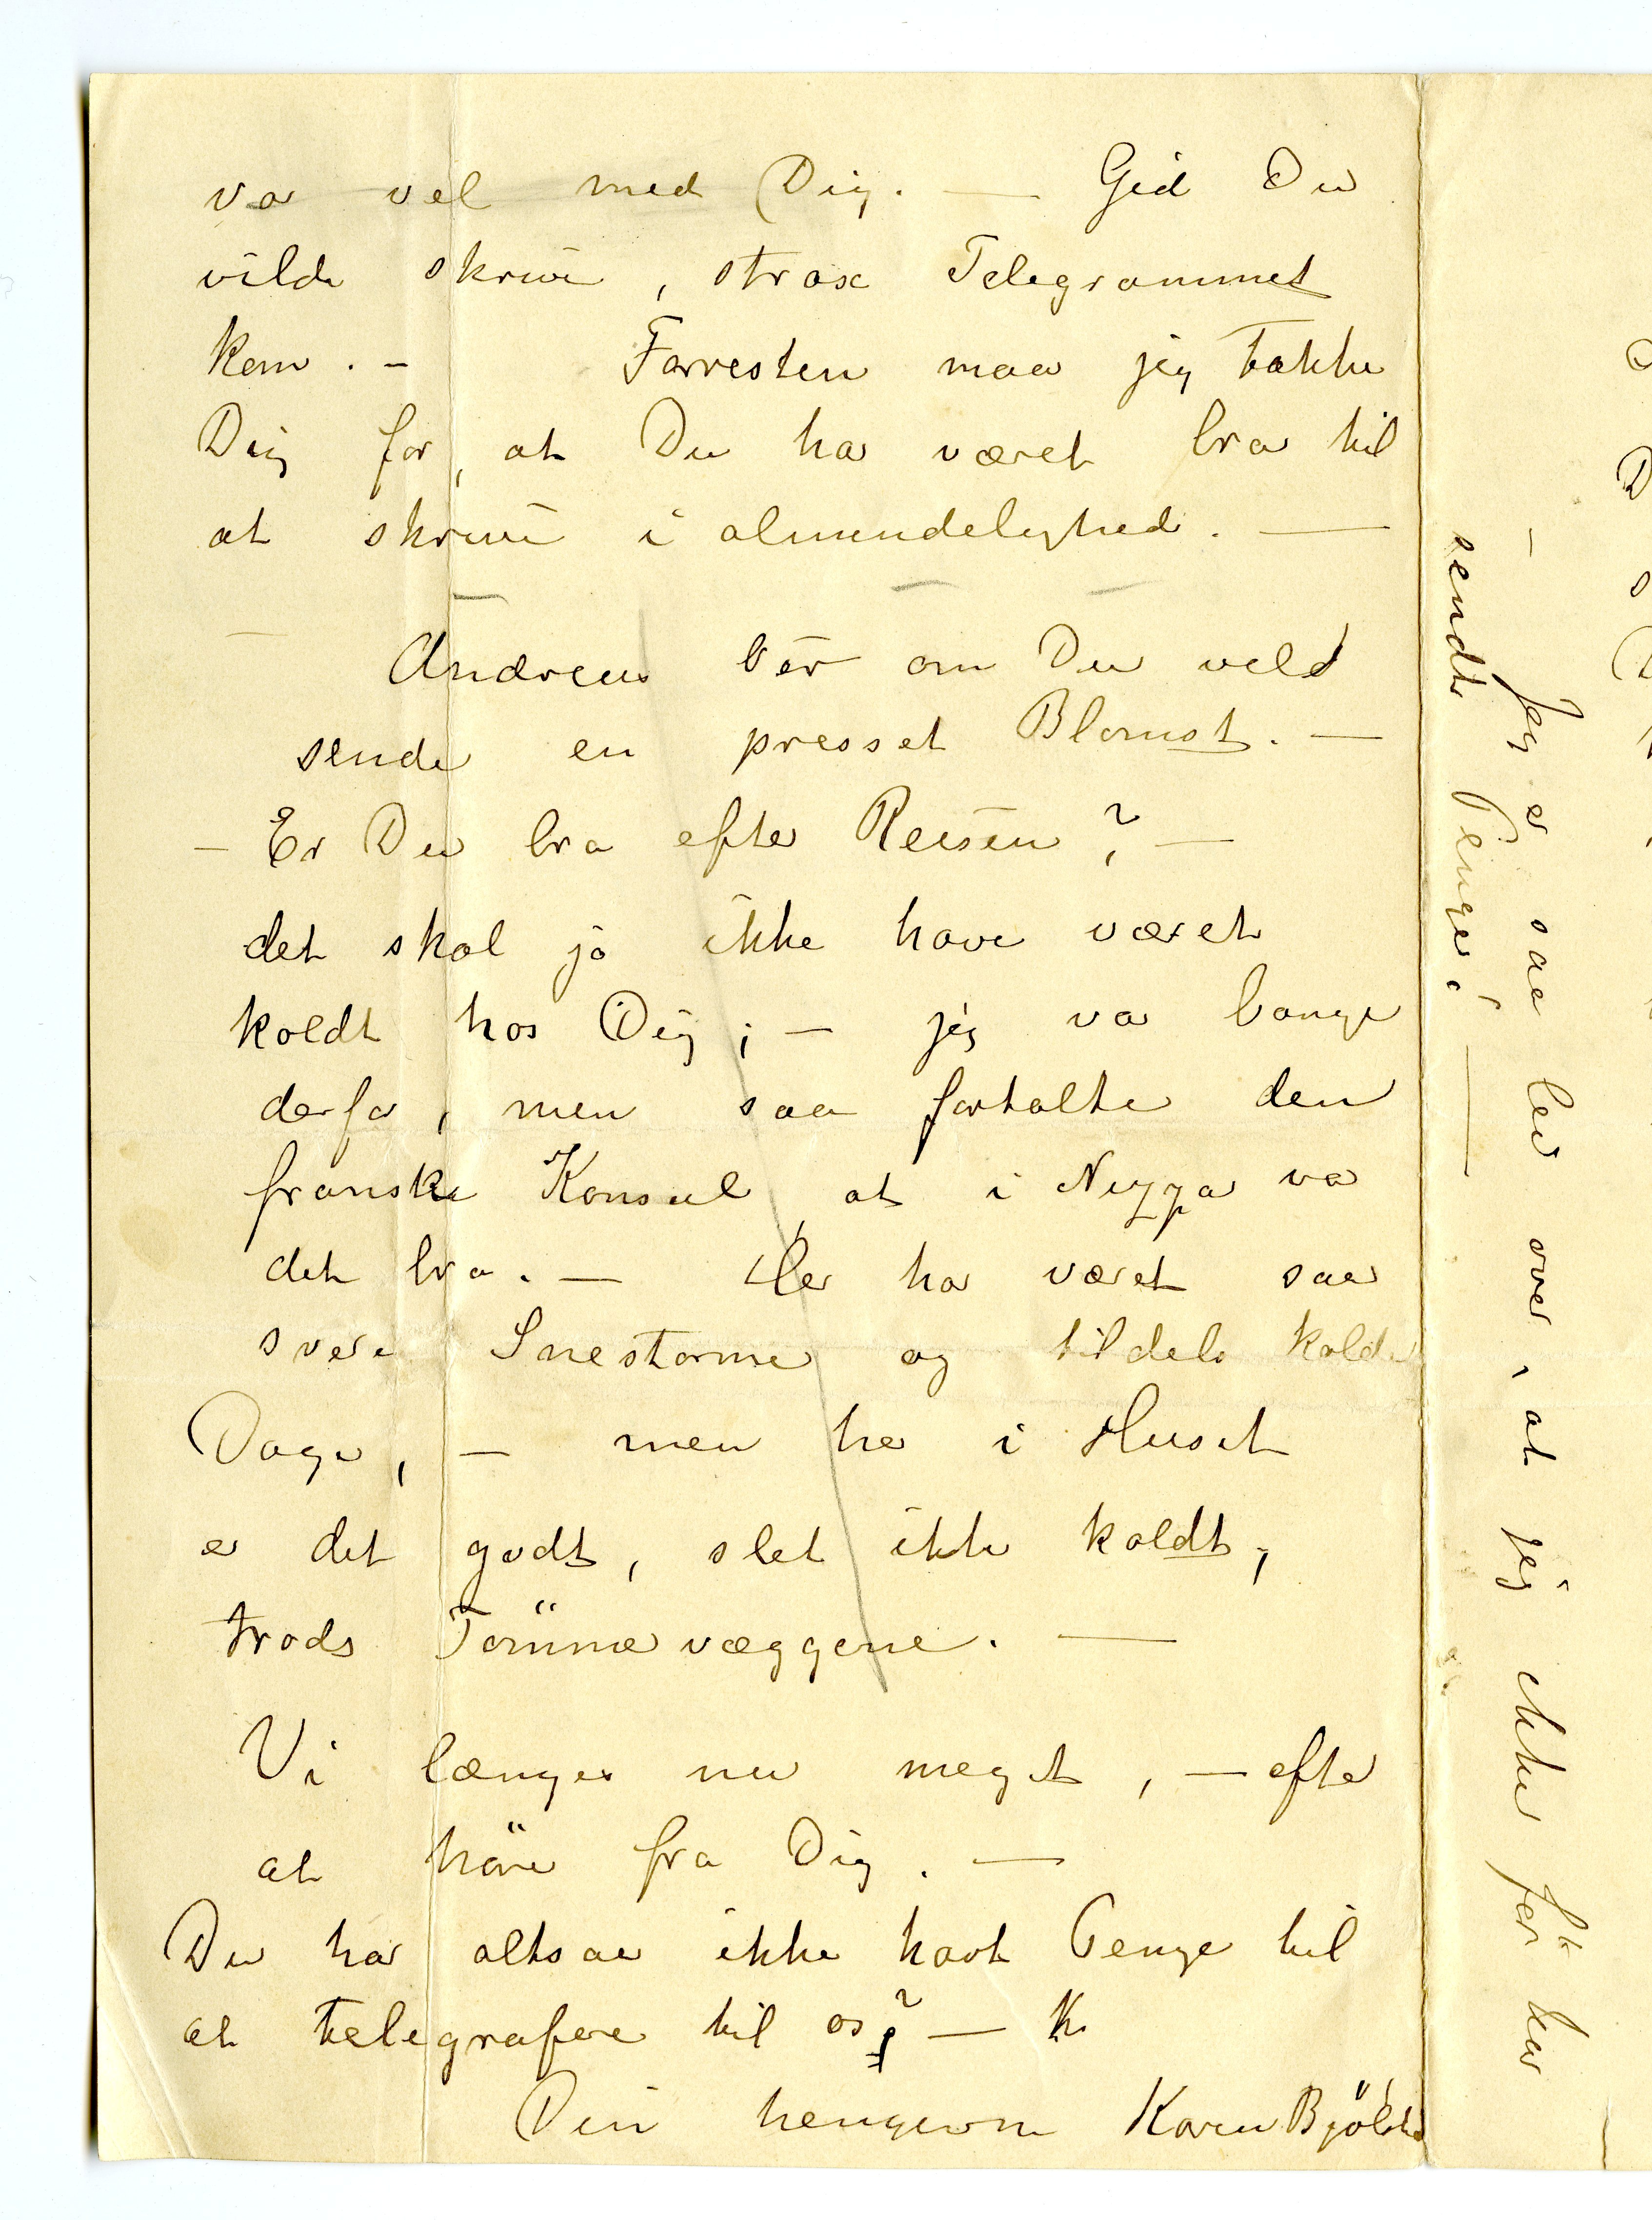 var vel med Dig. — Gid Du
vilde skrive, strax Telegrammet
kom. – Forresten maa jeg takke
Dig for, at Du har været bra til
at skrive i almindelighed. —
Andreas ber om Du vild
sende en presset Blomst. —
– Er Du bra efter Reisen? —
det skal jo ikke have været
koldt hos Dig; — jeg var bange
derfor, men saa fortalte den
franske Konsul, at i Nizza var
det bra. — Her har været saa
svere Snestorme og tildels kolde
Dage, — men her i Huset
er det godt, slet ikke koldt,
trods Tömmervæggene. —
Vi længes nu meget, — efter
at höre fra Dig. —
Du har altsaa ikke havt Penge til
at telegrafere til os? —
Din hengivne Karen Bjölstad
– Jeg er saa lei over, at jeg ikke før har
sendt Penge. —